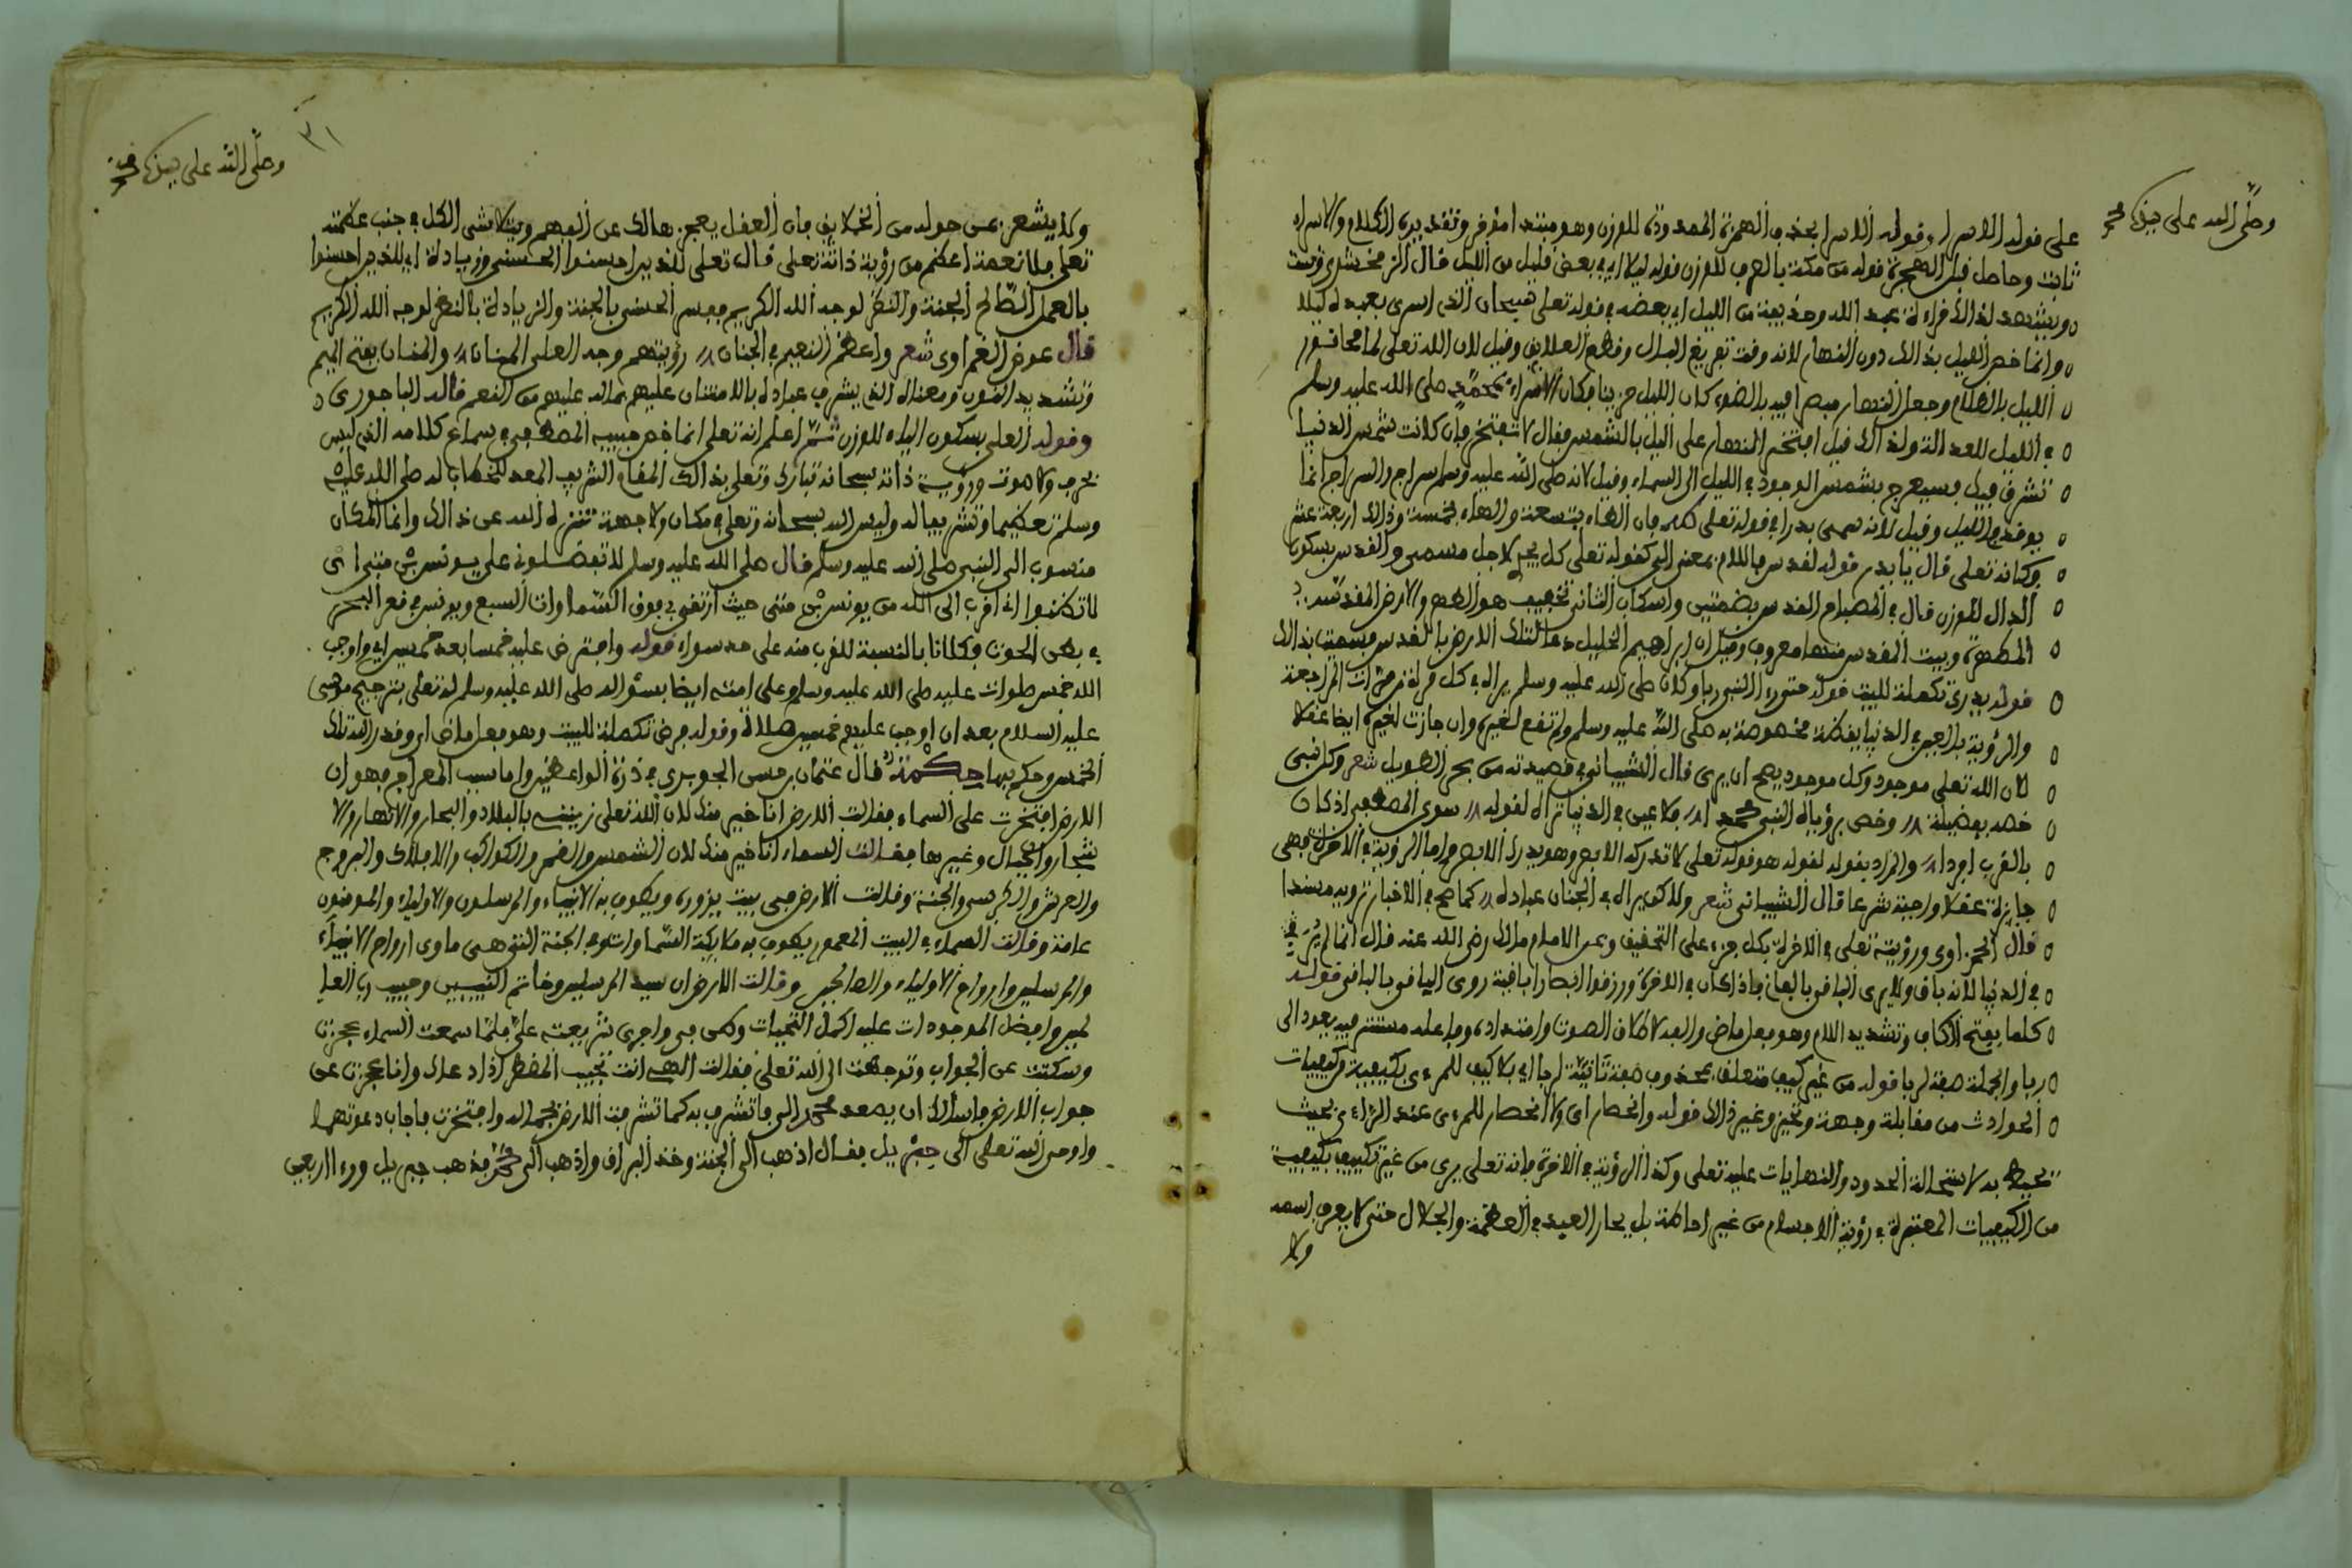 وصلى الله على سيدنا محمد
على قوله الاسرا وقوله الاسرا بحذف الهمزة الممدودة للوزن وهو مبتدا مؤخر وتقديره الكلام والاسراء
ثابت وحاصل قبل الهجرة قوله من مكة بالصرف للوزن قوله ليلا اي في بعض قليل من الليل قال الزمخشري
ويشهد لذالك قراءة عبد الله وحذيفة من الليل اي بعضه في قوله تعلى سبحان الذى اسرى بعبده ليلا
وانما خص الليل بذالك دون النهار لانه وقت تفريغ البال وقطع العلايق وقيل لان الله تعلى لما محا نور
الليل بالظلام وجعل النهار مبصرا فيه بالضوء كان الليل حزينا فكان الاسراء بمحمد صلى الله عليه وسلم
في الليل للعدالة ولذالك قيل افتخر النهار على الليل بالشمس فقال لا تفتخر فان كانت شمس الدنيا
تشرق فيك فسيعرج بشمس الوجود في الليل الى السماء وقيل لانه صلى الله عليه وسلم سراج والسراج انما
يوقد في الليل وقيل لانه سمى بدرا في قوله تعلى طه فان الطاء بتسعة والهاء بخمسة وذالك اربعة عشر
فكانه تعلى قال يا بدر قوله لقدس فاللام بمعنى الى كقوله تعلى كل يجرى لاجل مسمى والقدس بسكون
الدال للوزن قال في المصباح القدس بضمتين واسكان الثانى تخفيف هو الطهر والارض المقدسة
المطهرة وبيت المقدس منها معروف وقيل ان ابراهيم الخليل دعا لتلك الارض بالقدس فسميت بذالك
قوله يدرى تكملة للبيت قوله حتى رءا النبى ربا وكان صلى الله عليه وسلم يراه في كل مرة من مرات المراجعة
والرؤية بالعين في الدنيا يقظة مخصوصة به صلى الله عليه وسلم ولم تقع لغيره وان جازت لغيره ايضا عقلا
لان الله تعلى موجود وكل موجود يصح ان يرى قال الشيبانى في قصيدته من بحر الطويل شعر وكل نبى
خصه بفضيلة وخص برؤياه النبى محمدا فلا عين في الدنيا تراه لقوله سوى المصطفى اذ كان
بالقرب افردا والمراد بقوله لقوله هو قوله تعلى لا تدركه الابصر وهو يدرك الابصر واما الرؤية في الاخرة فهى
جايزة عقلا واجبة شرعا قال الشيبانى شعر ولاكن يراه في الجنان عباده كما صح في الاخبار نرويه مسندا
قال الغمراوى ورؤيته تعلى في الاخرة بكل جزء على التحقيق وعن الامام مالك رضى الله عنه قال انما لم ير في
في الدنيا لانه باق ولا يرى الباقى بالفانى فاذا كان في الاخرة ورزقوا ابصارا باقية روى الباقى بالباقى قوله
كلما بفتح الكاف وتشديد اللام وهو فعل ماض والفه لاطلاق الصوت وامتداده وفاعله مستتر فيه يعود الى
ربا والجملة صفة لربا قوله من غير كيف متعلق بمحذوف صفة ثانية لربا اي بلا كيف للمرءى بكيفية من كيفيات
الحوادث من مقابلة وجهة وتحيز وغير ذالك قوله وانحصار اى ولا انحصار للمرءى عند الراءى بحيث
يحيط به لاستحالة الحدود والنهايات عليه تعلى وكذا الرؤية في الاخرة فانه تعلى يرى من غير تكييف بكيفية
من الكيفيات المعتبرة في رؤية الاجسام من غير احاطة بل يحار العبد في العظمة والجلال حتى لا يعرف اسمه
ولا
وصلى الله على سيدنا محمد
٣١
ولا يشعر بمن حوله من الخلايق فان العقل يعجز هالك عن الفهم ويتلاشى الكل في جنب عظمته
تعلى فلا نعمة اعظم من رؤية ذاته تعلى قال تعلى للذين احسنوا الحسنى وزيادة اي للذين احسنوا
بالعمل الصالح الجنة والنظر لوجه الله الكريم ففسر الحسنى بالجنة والزيادة بالنظر لوجه الله الكريم
قال عوض الغمراوى شعر واعظم النعيم في الجنان رؤيتهم وجه العلى المنان والمنان بفتح الميم
وتشديد النون ومعناه الذى يشرف عباده بالامتنان عليهم بماله عليهم من النعم قاله الباجورى
وقوله العلى بسكون الياء للوزن ثم اعلم انه تعلى انما خص حبيبه المصطفى في سماع كلامه الذى ليس
بحرف ولا صوت ورؤية ذاته سبحانه تبارك وتعلى بذالك المقام الشريف المعد للخطاب له صلى الله عليه
وسلم تعظيما وتشريفا له وليس الله سبحانه وتعلى في مكان ولا جهة تنزه الله عن ذالك وانما المكان
منسوب الى النبى صلى الله عليه وسلم قال صلى الله عليه وسلم لا تفضلونى على يونس بن متى اى
لا تظنوا انى اقرب الى الله من يونس بن متى حيث ارتقى بى فوق السماوات السبع ويونس في قعر البحر
في بطن الحوت فكلانا بالنسبة للقرب منه على حد سواء قوله وافترض عليه خمسا بعد خمسين اي واوجب
الله خمس صلوات عليه صلى الله عليه وسلم وعلى امته ايضا بسؤاله صلى الله عليه وسلم له تعلى بترجيح موسى
عليه السلام بعد ان اوجب عليهم خمسين صلاة وقوله فرض تكملة للبيت وهو فعل ماض اى وقدر الله تلك
الخمس وحكم بها حكمة قال عثمان بن حسن الجوبرى في درة الواعظين واما سبب المعراج فهو ان
الارض افتخرت على السماء فقالت الارض انا خير منك لان الله تعلى زيننى بالبلاد والبحار والانهار والا
شجار والجبال وغيرها فقالت السماء انا خير منك لان الشمس والقمر والكواكب والافلاك والبروج
والعرش والكرسى والجنة في وقالت الارض في بيت يزوره ويطوف به الانبياء والمرسلون والاولياء والمومنون
عامة وقالت السماء في البيت المعمور يطوف به ملايكة السماوات وفي الجنة التى هى ماوى ارواح الانبياء
والمرسلين وارواح الاولياء والصالحين وقالت الارض ان سيد المرسلين وخاتم النبيين وحبيب رب العا
لمين وافضل الموجودات عليه اكمل التحيات وطن في واجرى شريعته على فلما سمعت السماء عجزت
وسكتت عن الجواب وتوجهت الى الله تعلى فقالت الهى انت تجيب المضطر اذا دعاك وانا عجزت عن
جواب الارض فاسالك ان يصعد محمد الى فاتشرف به كما تشرفت الارض بجماله وافتخرت فاجاب دعوتهما
واوحى الله تعلى الى جبريل فقال اذهب الى الجنة وخذ البراق واذهب الى محمد فذهب جبريل ورءا اربعين